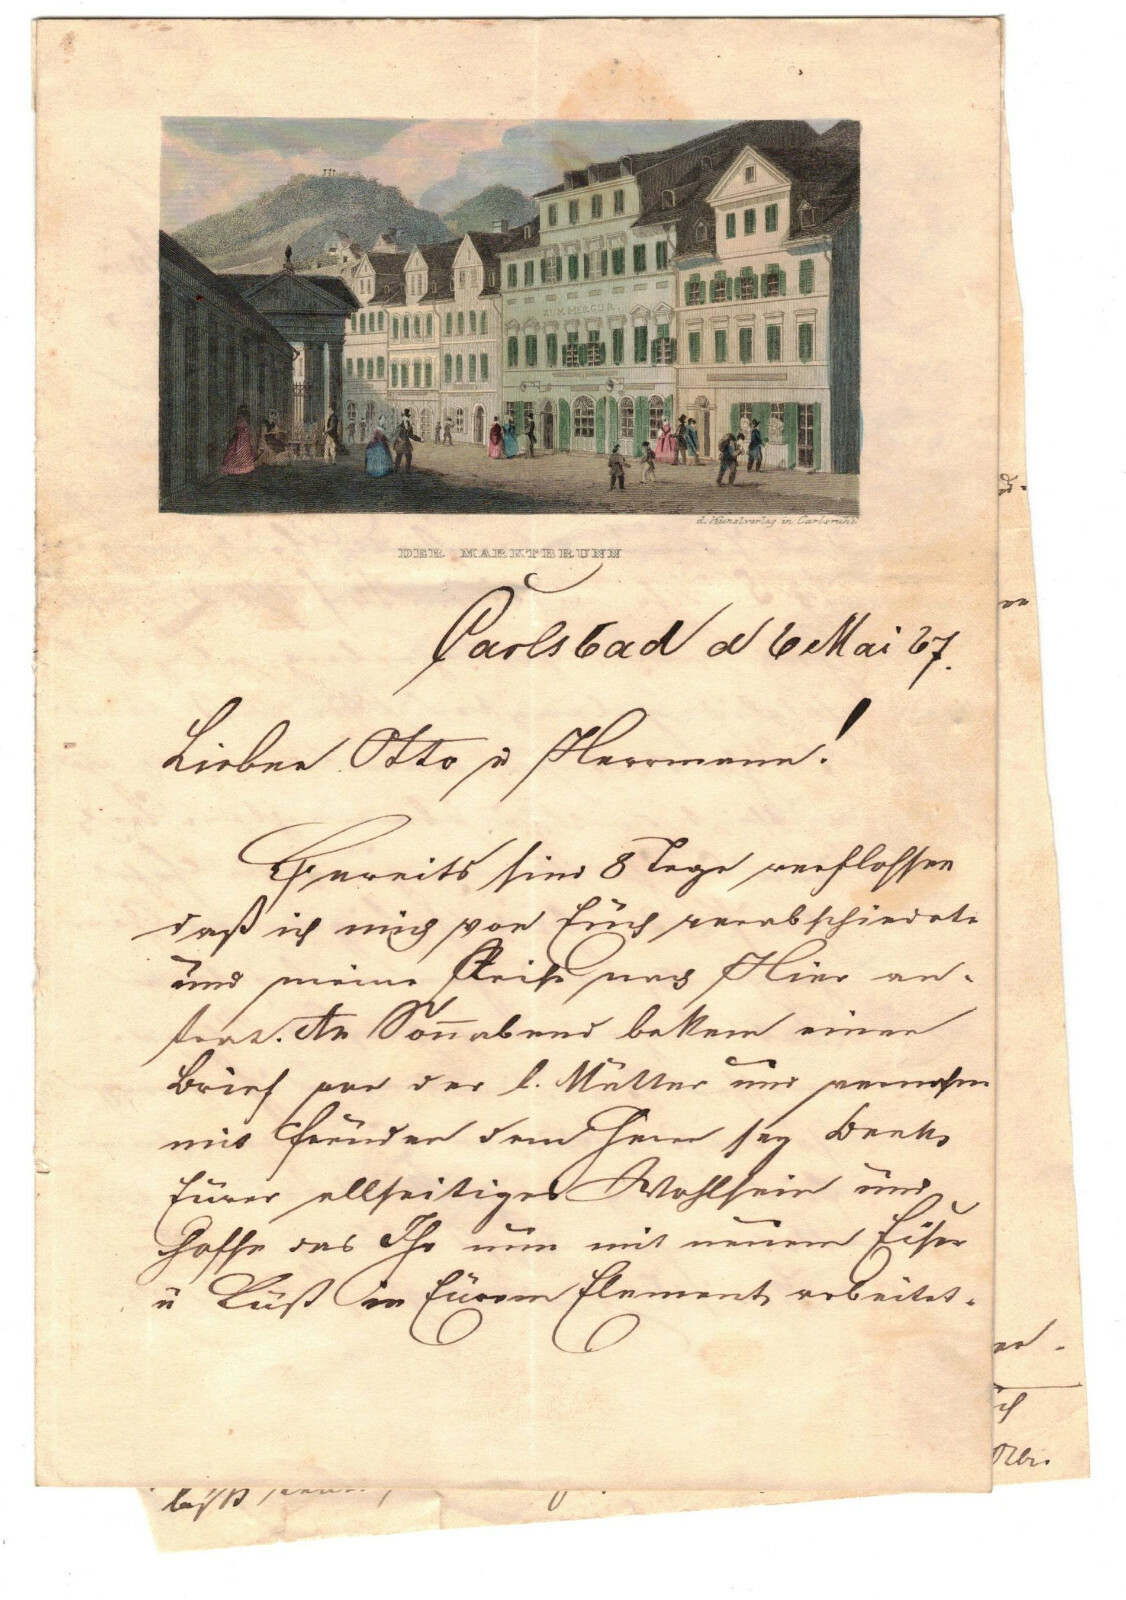 ZUM MERCUR.
d. Kunstverlag in Carlsruhe
DER MARKTBRUNN
Carlsbad d 6 Mai 67.
Lieber Otto u Herrmann!
Bereits sind 8 Tage verflossen
daß ich mich von Euch verabschiedete
und meine Reise nach Hier an-
trat. Am Sonnabend bekam einen
Brief von der l. Mutter und vernahm
mit Freuden dem Herrn sey Dank
Eurer allseitiges Wohlsein und
hoffe das Ihr nun mit neuem Eifer
u Lust in Eurem Element arbeitet.